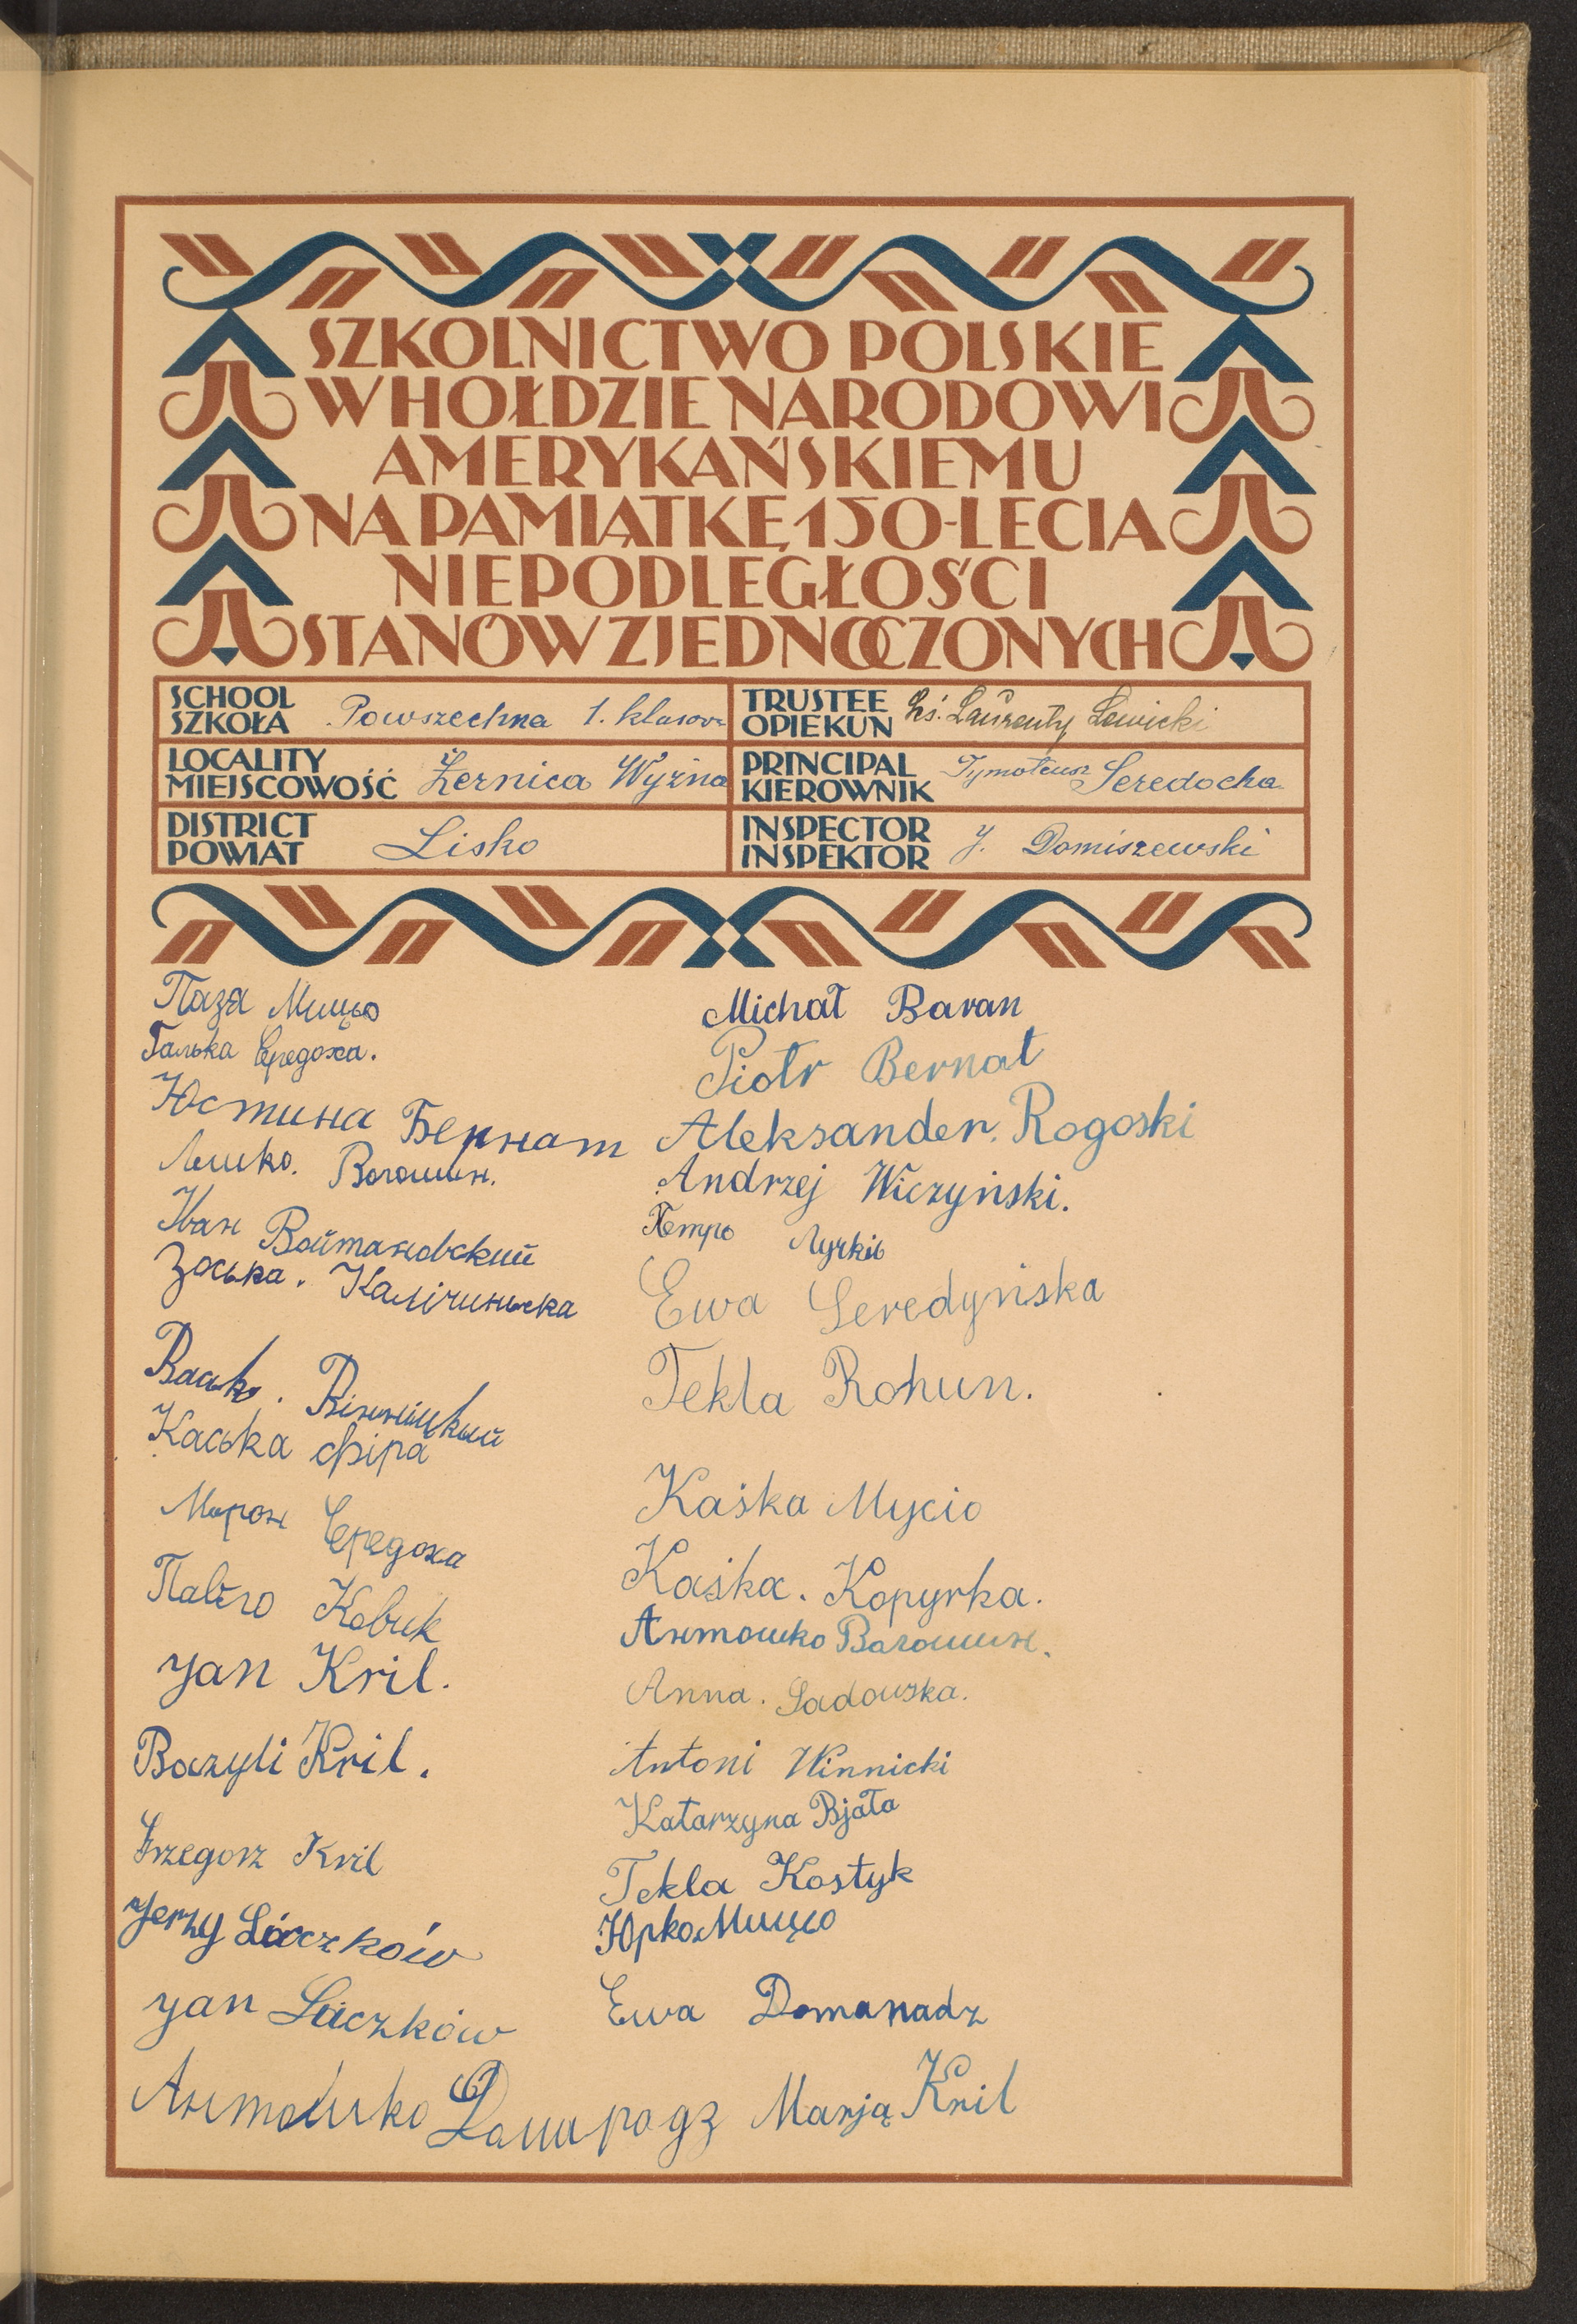 SZKOLNICTWO POLSKIE
W HOŁDZIE NARODOWI
AMERYKAŃSKIEMU
NA PAMIĄTKĘ 150-LECIA
NIEPODLEGŁOŚCI
STANÓW ZJEDNOCZONYCH
SCHOOL
SZKOŁA Powszechna 1. klasowa
TRUSTEE
OPIEKUN Ks. Laurenty Ławicki
LOCALITY
MIEJSCOWOŚĆ Żernica Wyżna
PRINCIPAL
KIEROWNIK Tymoteusz Seredocha
DISTRICT
POWIAT Lisko
INSPECTOR
INSPEKTOR J. Domiszewski
Паза Мицьо
Галька Середоха.
Юстина Бернат
Лешко. Ворошин.
Іван Войтановский
Зоська. Калічиньска
Васько. Вінницкий
Каська Фіра
Мирон Середоха
Павло Кобик
Jan Kril.
Bazyli Kril.
Grzegorz Kril
Jerzy Laczków
Jan Laczków
Антошко
Michał Baran
Piotr Bernat
Aleksander. Rogoski
Andrzej Wiczyński.
Петро Лучків
Ewa Seredyńska
Tekla Rohun.
Kaśka Mycio
Kaśka. Kopyrka.
Антошко Ворошин.
Anna. Sadowska.
Antoni Winnicki
Katarzyna Bjała
Tekla Kostyk
Юрко Мицьо
Ewa Domanadz
Marją Kril